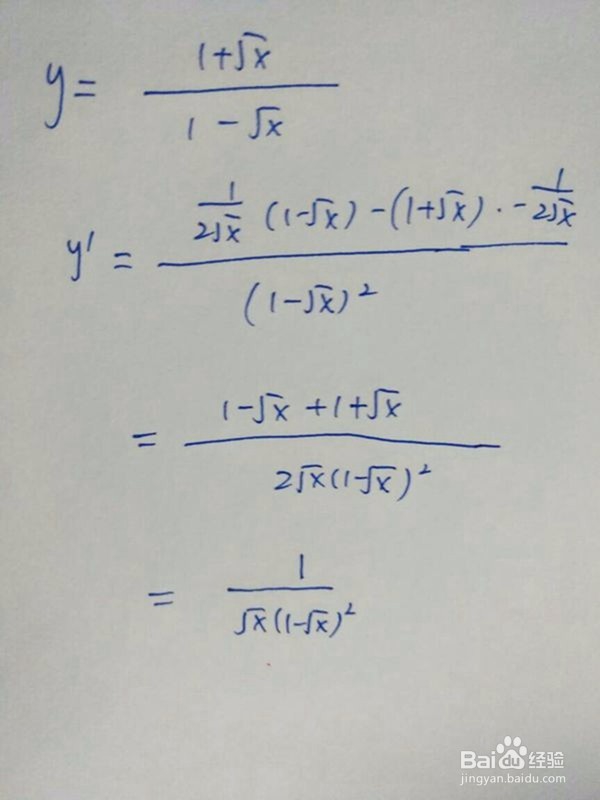 y = (1+√x)/(1-√x)
y' = (1/(2√x) (1-√x) - (1+√x) · -1/(2√x))/((1-√x)²)
= (1-√x+1+√x)/(2√x(1-√x)²)
= 1/(√x(1-√x)²)
Baidu经验
jingyan.baidu.com